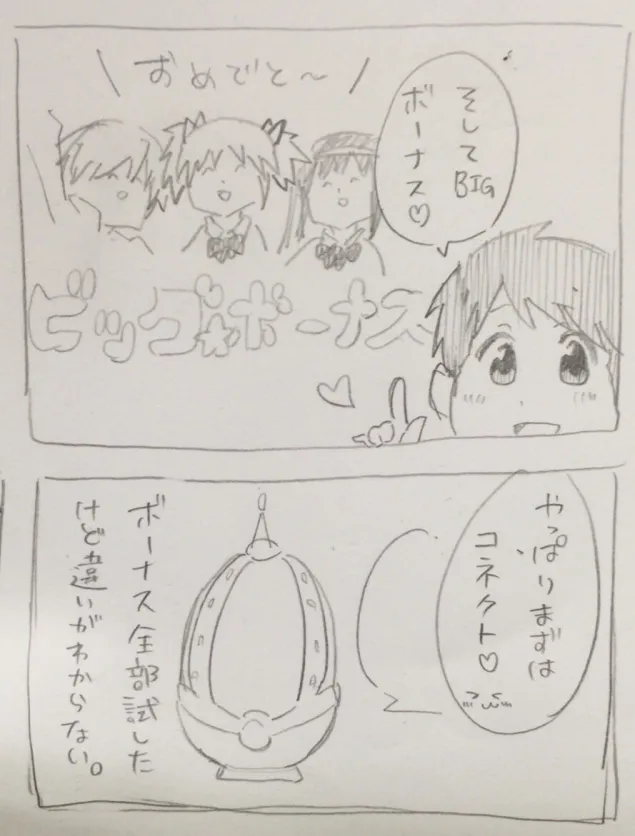 おめでと〜
そして
BIG
ボーナス♡
ビッグ☆ボーナス
やっぱりまずは
コネクト♡
ボーナス全部試した
けど違いがわからない。